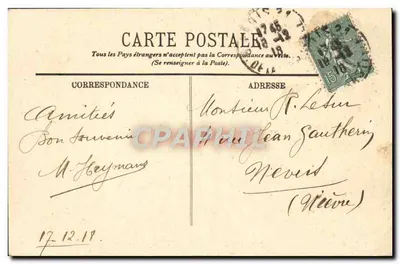 CARTE POSTALE
Tous les Pays étrangers n'acceptent pas la Correspondance au recto.
(Se renseigner à la Poste).
CORRESPONDANCE
ADRESSE
Amitiés
Bon Souvenir
M. Heymans
17-12.18
Monsieur H. Lesur
rue Jean Gautherin
Nevers
(Nièvre)
CPAPHIL